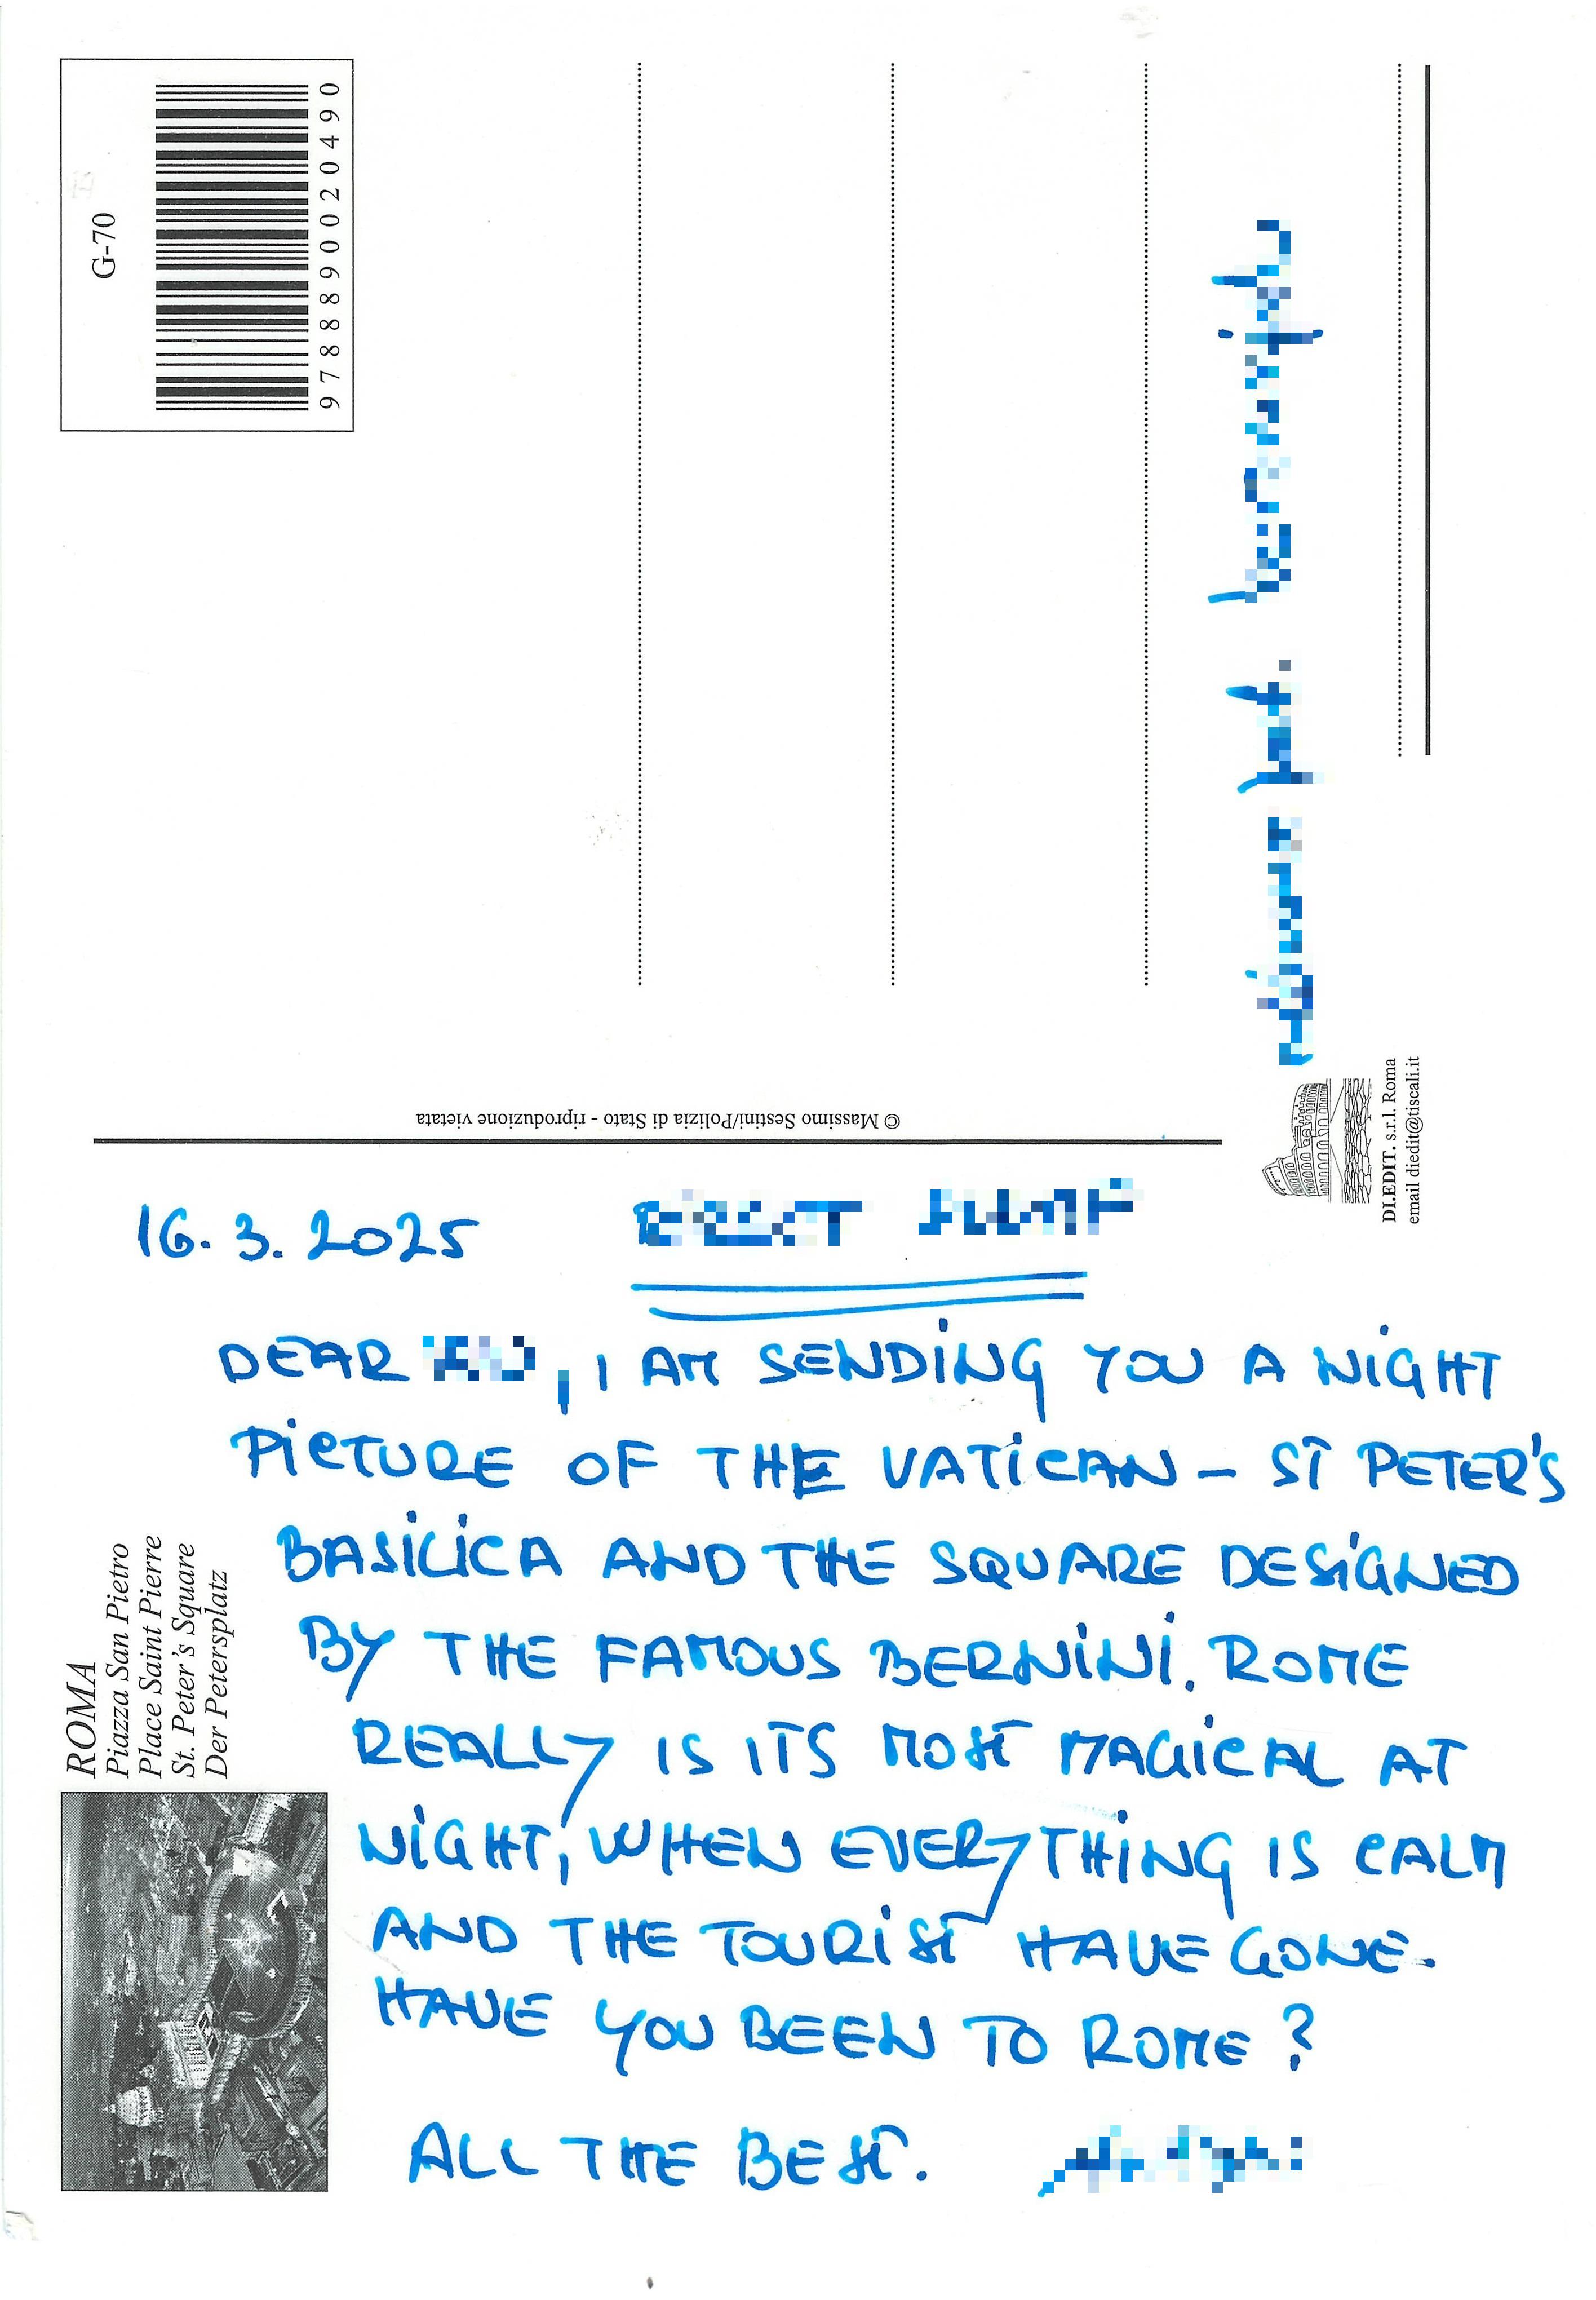 G-70
9788890020490
© Massimo Sestini/Polizia di Stato - riproduzione vietata
DI.EDIT. s.r.l. Roma
email diedit@tiscali.it
16. 3. 2025
DEAR , I AM SENDING YOU A NIGHT
PICTURE OF THE VATICAN – ST PETER'S
BASILICA AND THE SQUARE DESIGNED
BY THE FAMOUS BERNINI. ROME
REALLY IS ITS MOST MAGICAL AT
NIGHT, WHEN EVERYTHING IS CALM
AND THE TOURIST HAVE GONE.
HAVE YOU BEEN TO ROME?
ALL THE BEST.
ROMA
Piazza San Pietro
Place Saint Pierre
St. Peter's Square
Der Petersplatz